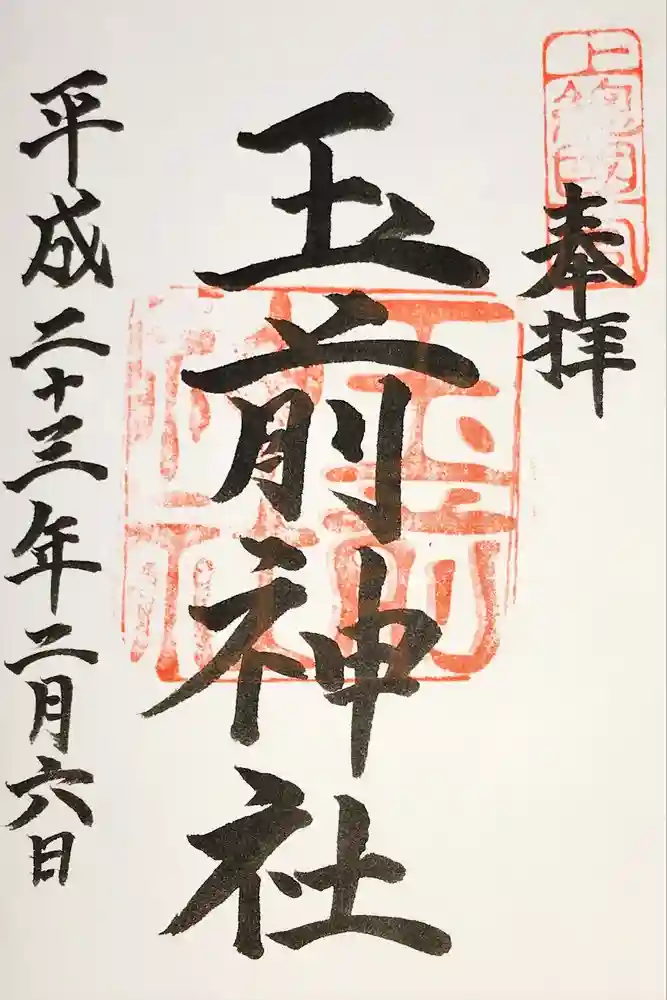 上総國一宮
奉拝
玉前神社
玉前神社
平成二十三年二月六日